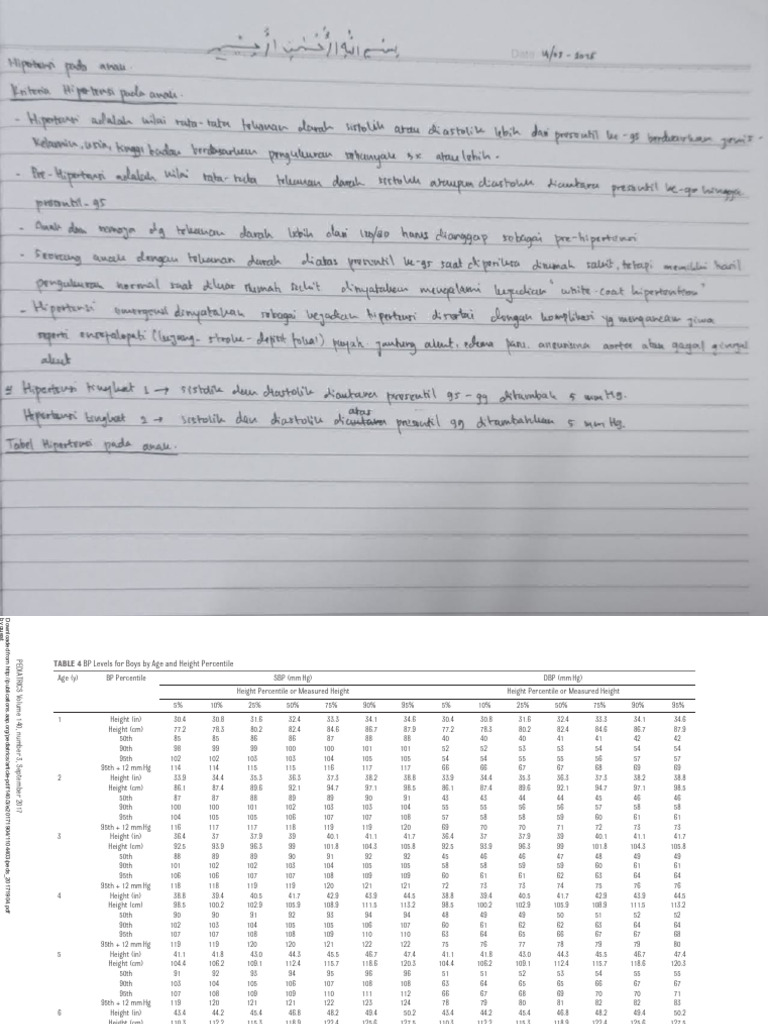 بسم الله الرحمن الرحيم
Date 14/05 - 2025
Hipertensi pada anak.
Kriteria Hipertensi pada anak.
- Hipertensi adalah nilai rata-rata tekanan darah sistolik atau diastolik lebih dari presentil ke-95 berdasarkan jenis
kelamin, usia, tinggi badan berdasarkan pengukuran sebanyak 3x atau lebih.
- Pre-Hipertensi adalah nilai rata-rata tekanan darah sistolik ataupun diastolik diantara presentil ke-90 hingga
presentil-95
- Anak dan remaja dg tekanan darah lebih dari 120/80 harus dianggap sebagai pre-hipertensi
- Seorang anak dengan tekanan darah diatas presentil ke-95 saat diperiksa dirumah sakit, tetapi memiliki hasil
pengukuran normal saat diluar rumah sakit dinyatakan mengalami kejadian "white-coat hipertention"
- Hipertensi emergensi dinyatakan sebagai kejadian hipertensi disertai dengan komplikasi yg mengancam jiwa
seperti ensefalopati (kejang - stroke - defisit fokal) payah jantung akut, edema paru, aneurisma aorta atau gagal ginjal
akut
Hipertensi tingkat 1 → sistolik dan diastolik diantara presentil 95 - 99 ditambah 5 mmHg.
Hipertensi tingkat 2 → sistolik dan diastolik diantara atas presentil 99 ditambahkan 5 mmHg.
Tabel Hipertensi pada anak.
PEDIATRICS Volume 140, number 3, September 2017
TABLE 4 BP Levels for Boys by Age and Height Percentile
Age (y) BP Percentile SBP (mm Hg) DBP (mm Hg)
Height Percentile or Measured Height Height Percentile or Measured Height
5% 10% 25% 50% 75% 90% 95% 5% 10% 25% 50% 75% 90% 95%
1 Height (in) 30.4 30.8 31.6 32.4 33.3 34.1 34.6 30.4 30.8 31.6 32.4 33.3 34.1 34.6
Height (cm) 77.2 78.3 80.2 82.4 84.6 86.7 87.9 77.2 78.3 80.2 82.4 84.6 86.7 87.9
50th 85 85 86 86 87 88 88 40 40 40 41 41 42 42
90th 98 99 99 100 100 101 101 52 52 53 53 54 54 54
95th 102 102 103 103 104 105 105 54 54 55 55 56 57 57
95th + 12 mm Hg 114 114 115 115 116 117 117 66 66 67 67 68 69 69
2 Height (in) 33.9 34.4 35.3 36.3 37.3 38.2 38.8 33.9 34.4 35.3 36.3 37.3 38.2 38.8
Height (cm) 86.1 87.4 89.6 92.1 94.7 97.1 98.5 86.1 87.4 89.6 92.1 94.7 97.1 98.5
50th 87 87 88 89 89 90 91 43 43 44 44 45 46 46
90th 100 100 101 102 103 103 104 55 55 56 56 57 58 58
95th 104 105 105 106 107 107 108 57 58 58 59 60 61 61
95th + 12 mm Hg 116 117 117 118 119 119 120 69 70 70 71 72 73 73
3 Height (in) 36.4 37 37.9 39 40.1 41.1 41.7 36.4 37 37.9 39 40.1 41.1 41.7
Height (cm) 92.5 93.9 96.3 99 101.8 104.3 105.8 92.5 93.9 96.3 99 101.8 104.3 105.8
50th 88 89 89 90 91 92 92 45 46 46 47 48 49 49
90th 101 102 102 103 104 105 105 58 58 59 59 60 61 61
95th 106 106 107 107 108 109 109 60 61 61 62 63 64 64
95th + 12 mm Hg 118 118 119 119 120 121 121 72 73 73 74 75 76 76
4 Height (in) 38.8 39.4 40.5 41.7 42.9 43.9 44.5 38.8 39.4 40.5 41.7 42.9 43.9 44.5
Height (cm) 98.5 100.2 102.9 105.9 108.9 111.5 113.2 98.5 100.2 102.9 105.9 108.9 111.5 113.2
50th 90 90 91 92 93 94 94 48 49 49 50 51 52 52
90th 102 103 104 105 105 106 107 60 61 62 62 63 64 64
95th 107 107 108 108 109 110 110 63 64 65 66 67 67 68
95th + 12 mm Hg 119 119 120 120 121 122 122 75 76 77 78 79 79 80
5 Height (in) 41.1 41.8 43.0 44.3 45.5 46.7 47.4 41.1 41.8 43.0 44.3 45.5 46.7 47.4
Height (cm) 104.4 106.2 109.1 112.4 115.7 118.6 120.3 104.4 106.2 109.1 112.4 115.7 118.6 120.3
50th 91 92 93 94 95 96 96 51 51 52 53 54 55 55
90th 103 104 105 106 107 108 108 63 64 65 65 66 67 67
95th 107 108 109 109 110 111 112 66 67 68 69 70 70 71
95th + 12 mm Hg 119 120 121 121 122 123 124 78 79 80 81 82 82 83
6 Height (in) 43.4 44.2 45.4 46.8 48.2 49.4 50.2 43.4 44.2 45.4 46.8 48.2 49.4 50.2
Height (cm) 110.3 112.2 115.3 118.9 122.4 125.6 127.5 110.3 112.2 115.3 118.9 122.4 125.6 127.5